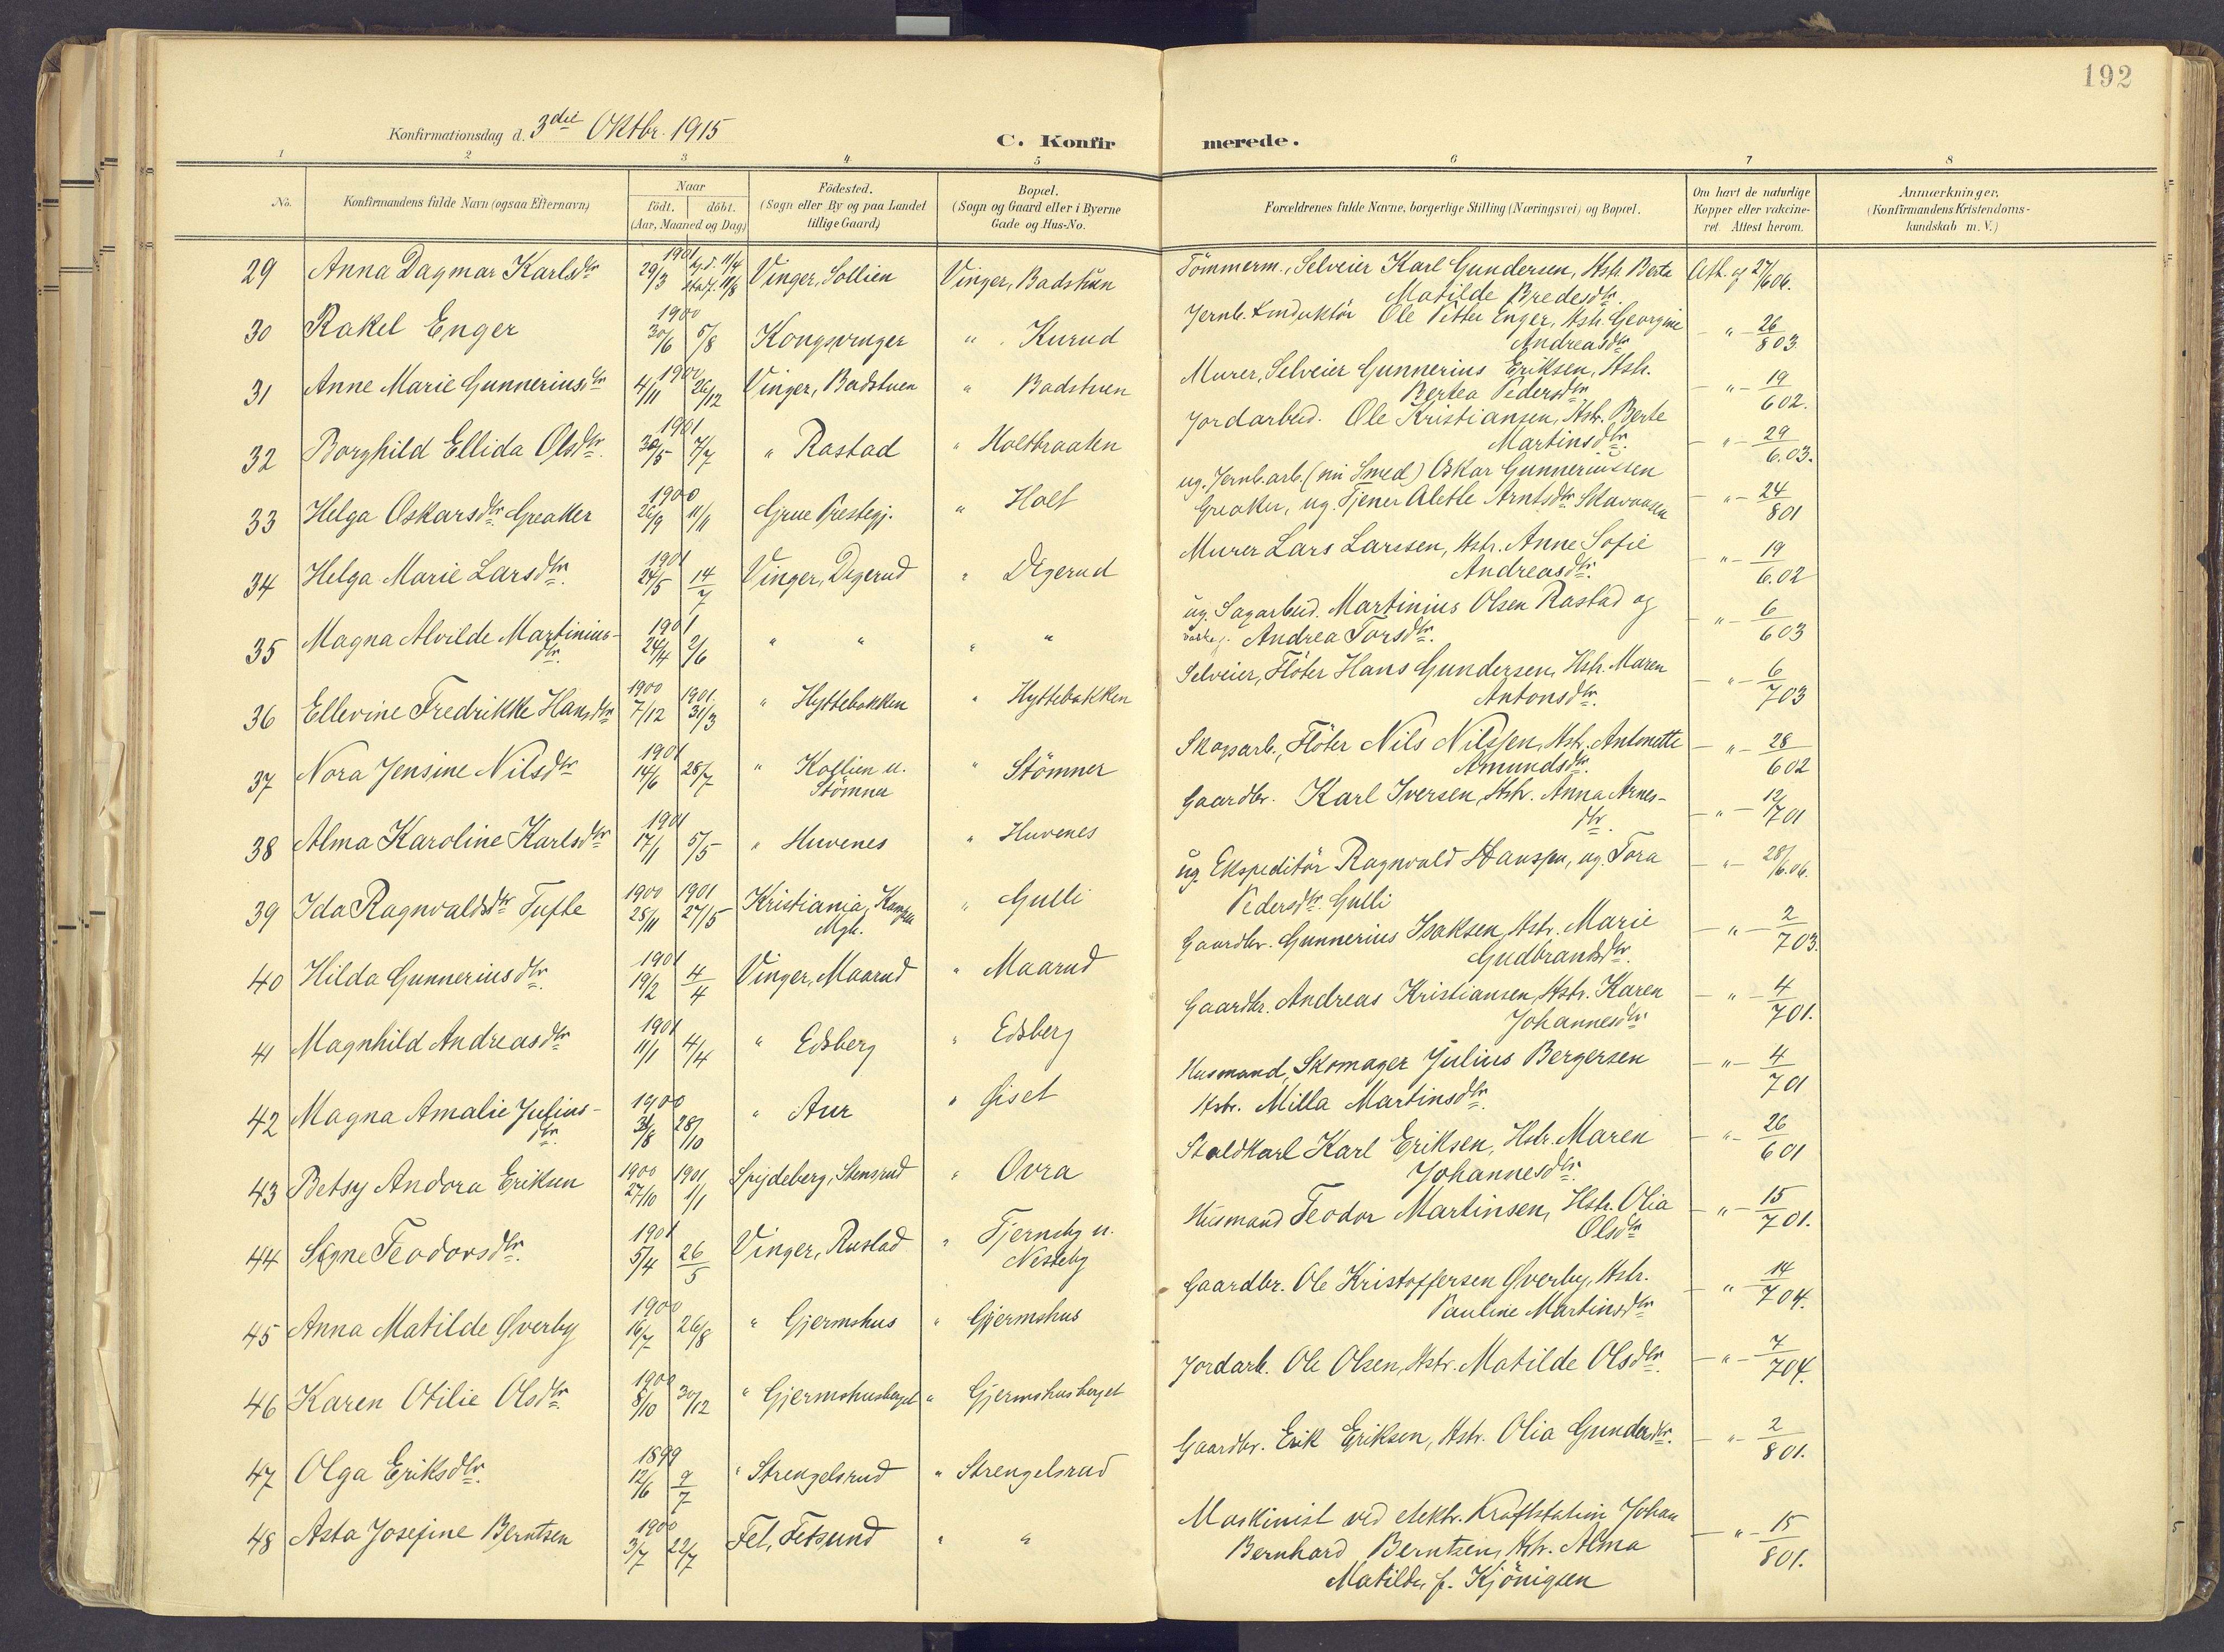 192
Konfirmationsdag d. 3die Oktbr. 1915
C. Konfir merede.
1 2 3 4 5 6 7 8
No. Konfirmandens fulde Navn (ogsaa Efternavn) Naar födt. döbt. (Aar, Maaned og Dag) Födested. (Sogn eller By og paa Landet tillige Gaard) Bopæl. (Sogn og Gaard eller i Byerne Gade og Hus-No. Forældrenes fulde Navne, borgerlige Stilling (Næringsvei) og Bopæl. Om havt de naturlige Kopper eller vakcine-ret. Attest herom. Anmærkninger. (Konfirmandens Kristendoms-kundskab m. V.)
29 Anna Dagmar Karlsdtr 1901 29/3 hj.d. 11/4 stadf. 11/8 Vinger, Sollien Vinger, Badstuen Tömmerm., Selveier Karl Gundersen, Hstr. Berte
Matilde Bredesdtr. Att. af 27/6 06.
30 Rakel Enger 1900 30/6 5/8 Kongsvinger " Kurud Jernb. Konduktör Ole Petter Enger, Hstr. Georgine
Andreasdtr — " — 26/8 03
31 Anne Marie Gunneriusdtr 1900 4/11 26/12 Vinger, Badstuen " Badstuen Murer, Selveier Gunnerius Eriksen, Hstr.
Bertea Pedersdtr. — " — 19/6 02.
32 Borghild Ellida Olsdtr. 1901 30/5 7/7 " Rastad " Holtbraaten Jordarbeid. Ole Kristiansen, Hstr. Berte
Martinsdtr. — " — 29/6.03.
33 Helga Oskarsdtr Greaker 1900 26/9 11/11 Grue Prestegj. " Holt ug. Jernb.arb. (nu Smed) Oskar Gunneriussen
Greaker, ug. Tjener Alette Arntsdtr — " — 24/8 01
34 Helga Marie Larsdtr. 1901 24/5 14/7 Vinger, Digerud " Digerud Murer Lars Larssen, Hstr. Anne Sofie
Andreasdtr. — " — 19/6.02
35 Magna Alvilde Martinius-
dtr. 1901 24/4 2/6 " " " " ug. Sagarbeid. Martinius Olsen Rastad og
Andrea Torsdtr. — " — 6/6 03
36 Ellevine Fredrikke Hansdtr 1900 7/12 1901 31/3 " Hyttebakken " Hyttebakken Selveier, Flöter Hans Gundersen, Hstr. Maren
Antonsdtr. — " — 6/7 03
37 Nora Jensine Nilsdtr 1901 14/6 28/7 " Kollien u.
Stömner " Stömner Skogsarb., Flöter Nils Nilssen, Hstr. Antonette
Amundsdtr. — " — 28/6 02
38 Alma Karoline Karlsdtr 1901 17/1 5/5 " Huvenes " Huvenes Gaardbr. Karl Iversen, Hstr. Anna Arnes-
dtr. — " — 12/7 01
39 Ida Ragnvaldsdtr Tufte 1900 28/11 1901 27/5 Kristiania, Kampen
Mgh. " Gulli ug. Ekspeditör Ragnvald Hanssen, ug. Tora
Pedersdtr. Gulli — " — 28/6.06.
40 Hilda Gunneriusdtr. 1901 19/2 4/4 Vinger, Maarud " Maarud Gaardbr. Gunnerius Isaksen, Hstr. Marie
Gudbrandsdtr. — " — 2/7 03.
41 Magnhild Andreasdtr 1901 11/1 4/4 " Edsberg " Edsberg Gaardbr. Andreas Kristiansen, Hstr. Karen
Johannesdtr — " — 4/7 01.
42 Magna Amalie Julius-
dtr. 1900 31/8 28/10 " Aur " Öiset Husmand, Skomager Julius Bergersen
Hstr. Milla Martinsdtr. — " — 4/7 01
43 Betsy Andora Eriksen 1900 27/10 1901 1/1 Spydeberg, Stensrud " Ovra Staldkarl Karl Eriksen, Hstr. Maren
Johannesdtr. — " — 26/6 01
44 Signe Teodorsdtr. 1901 5/4 26/5 Vinger, Rustad " Tjernsby u.
Nesteby Husmand Teodor Martinsen, Hstr. Olia
Olsdtr — " — 15/7 01.
45 Anna Matilde Øverby 1900 16/7 26/8 " Gjermshus " Gjermshus Gaardbr. Ole Kristoffersen Øverby, Hstr.
Pauline Martinsdtr — " — 14/7 04.
46 Karen Otilie Olsdtr. 1900 8/10 30/12 " Gjermshusberget " Gjermshusberget Jordarb. Ole Olsen, Hstr. Matilde Olsdtr. — " — 7/7 04.
47 Olga Eriksdtr. 1899 12/6 9/7 " Strengelsrud " Strengelsrud Gaardbr. Erik Eriksen, Hstr. Olia Gundersdtr. — " — 2/8 01.
48 Asta Josefine Berntsen 1900 3/7 22/7 Fet, Fetsund " " Maskinist ved elektr. Kraftstation Johan
Bernhard Berntsen, Hstr. Alma
Matilde, f. Kjönigsen — " — 15/8 01.